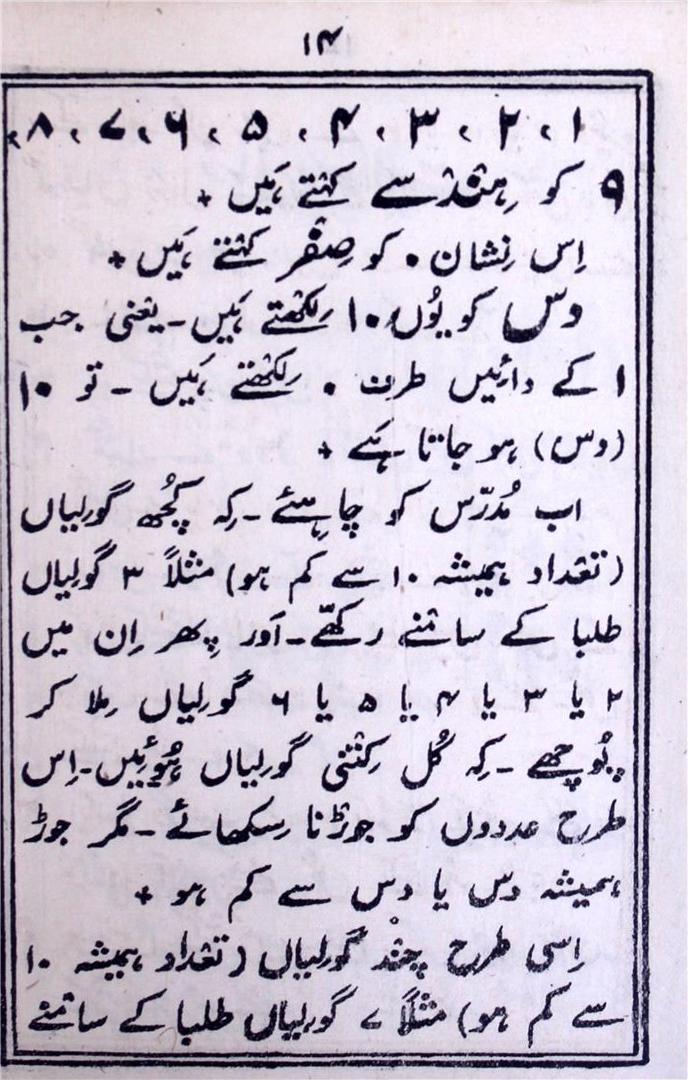 ۱۴
۱، ۲، ۳، ۴، ۵، ۶، ۷، ۸،
۹ کو ہِنْدسے کہْتے ہَیں +
اِس نِشان ۰ کو صِفْر کہْتے ہَیں +
دس کو یُوں ۱۰ لِکھْتے ہَیں۔ یعْنی جب
۱ کے دائیں طرف ۰ لِکھْتے ہَیں ۔ تو ۱۰
(دس) ہو جاتا ہَے +
اب مُدرّس کو چاہِئے ۔ کِہ کُچْھ گولِیاں
(تعْداد ہمیشہ ۱۰ سے کم ہو) مثلاً ۳ گولِیاں
طلبا کے سامْنے رکھّے ۔ اَور پِھر اِن میں
۲ یا ۳ یا ۴ یا ۵ یا ۶ گولِیاں مِلا کر
پُوچھے ۔ کِہ کُل کِتْنی گولِیاں ہُوئِیں۔ اِس
طرح عددوں کو جوڑْنا سِکھائے ۔ مگر جوڑ
ہمیشہ دس یا دس سے کم ہو +
اِسی طرح چنْد گولِیاں (تعْداد ہمیشہ ۱۰
سے کم ہو) مثلاً ۷ گولِیاں طلبا کے سامْنے